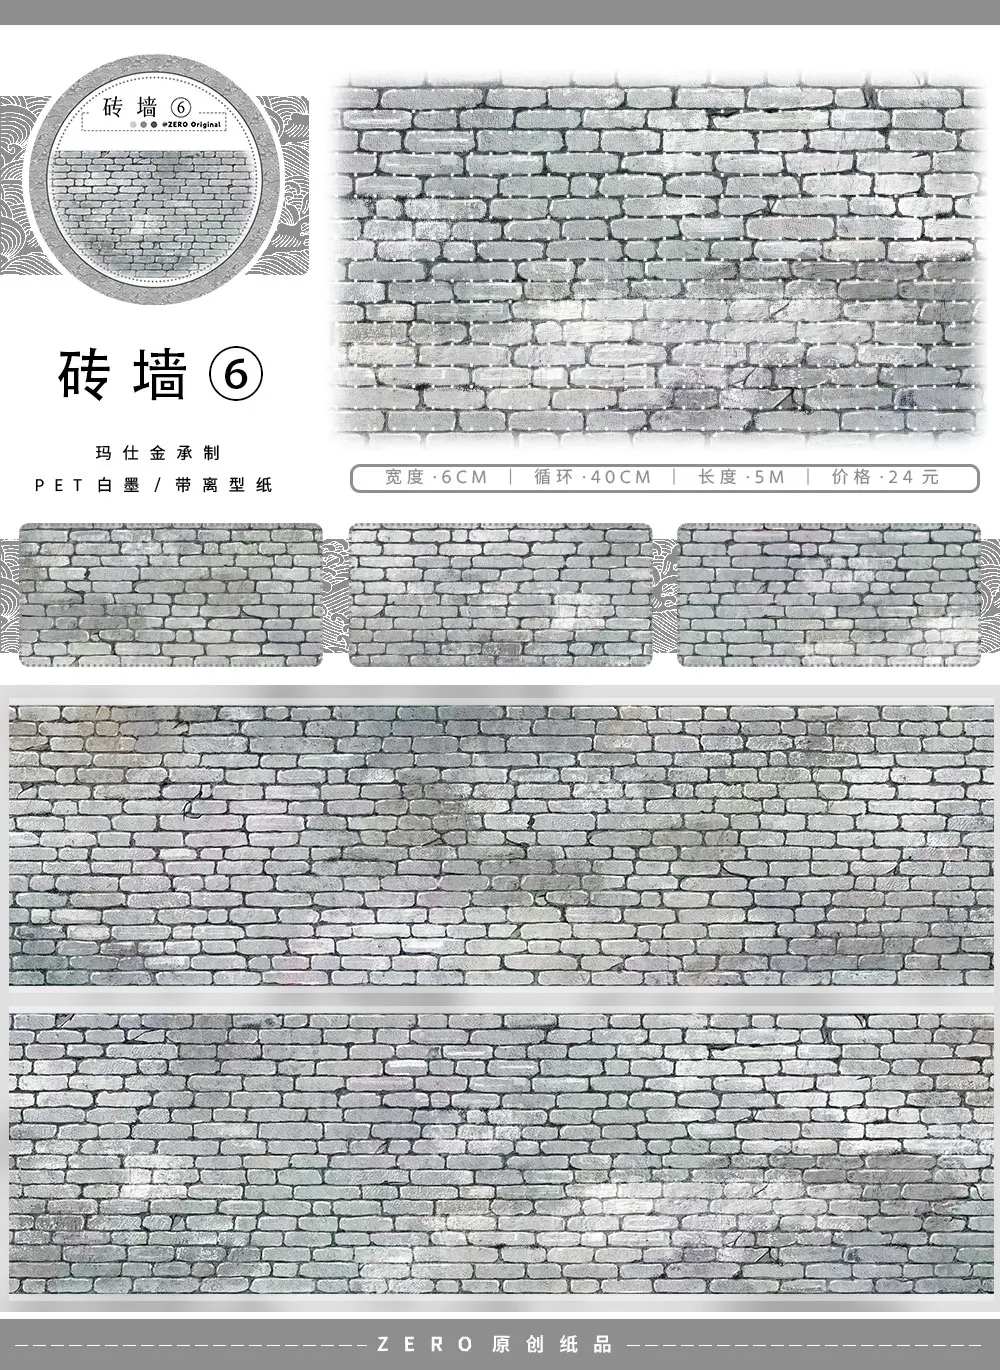 砖墙⑥
@ZERO Original
砖墙⑥
玛仕金承制
PET白墨/带离型纸
宽度·6CM｜循环·40CM｜长度·5M｜价格·24元
ZERO原创纸品